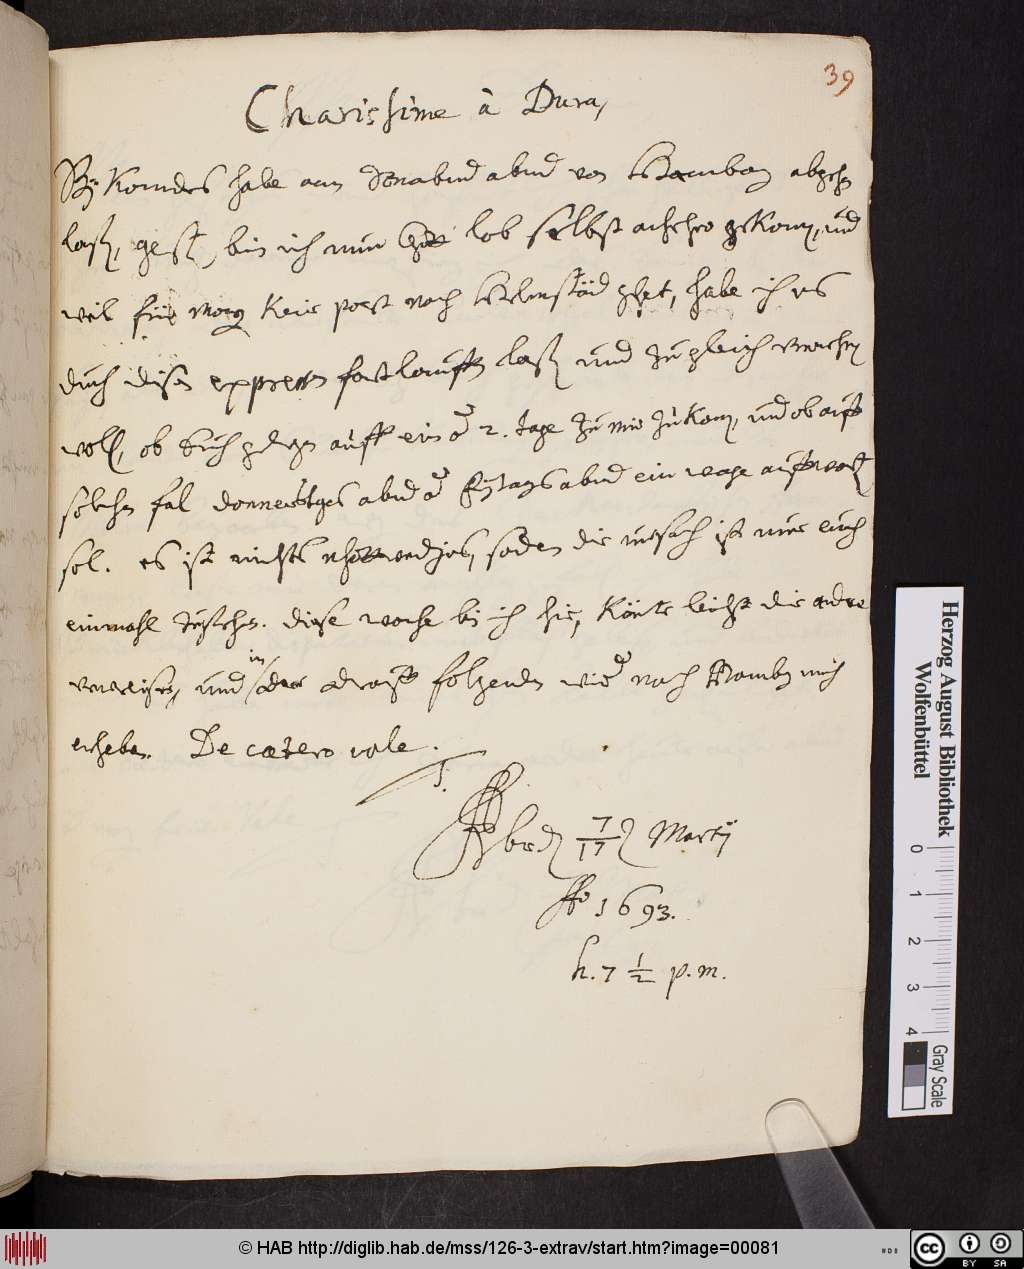 39
Charissime à Dura,
habe am abend von Hamburg
laßen, bin ich nun Gott lob selbst gekomen, und
weil für Morg keine post nach Helmstäd gehet, habe ich es
durch diesen expressen fortlauffen laßen und zugleich
woll, ob Euch auff ein od 2. tage zu mir zu kom, und ob auff
solchen fal donnerstages abend od freytags abend ein wage auffwart
sol. es ist nichts sonden die uhrsach ist nur euch
einmahl zusehen. diese woche bi ich hie, könte leicht die andre
verreisen, und in der drauff folgenden wied nach Hamb mich
erheben. De caetero vale.
7/17 Martij
Ao 1693.
h. 7 1/2 p. m.
Herzog August Bibliothek
Wolfenbüttel
0 1 2 3 4
Gray Scale
© HAB http://diglib.hab.de/mss/126-3-extrav/start.htm?image=00081
cc BY SA